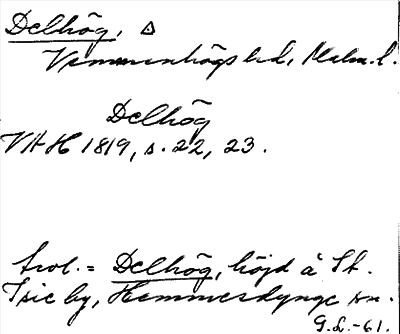 Delhög, Δ
Vemmenhögs hd, Malm. l.
Delhög
VAH 1819, s. 22, 23.
trol. = Delhög, höjd å St.
Isie by, Hemmesdynge sn.
G.L.-61.